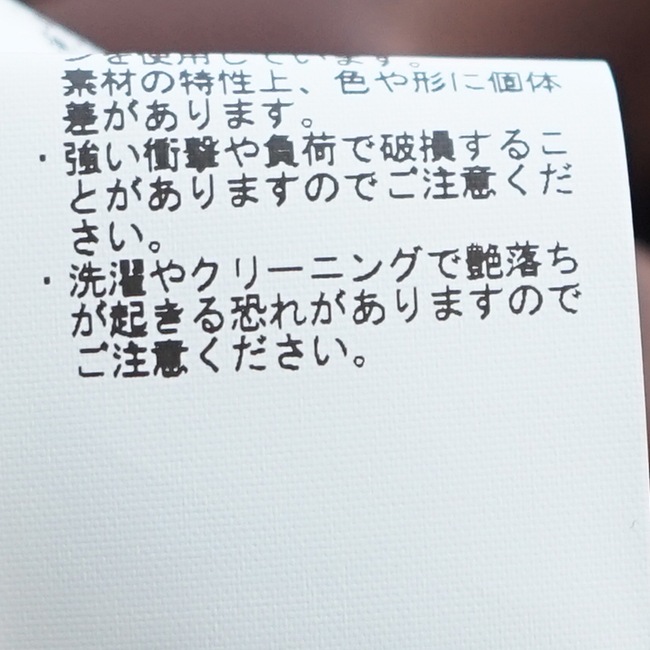 ンを使用しています。
素材の特性上、色や形に個体
差があります。
・強い衝撃や負荷で破損するこ
とがありますのでご注意くだ
さい。
・洗濯やクリーニングで艶落ち
が起きる恐れがありますので
ご注意ください。